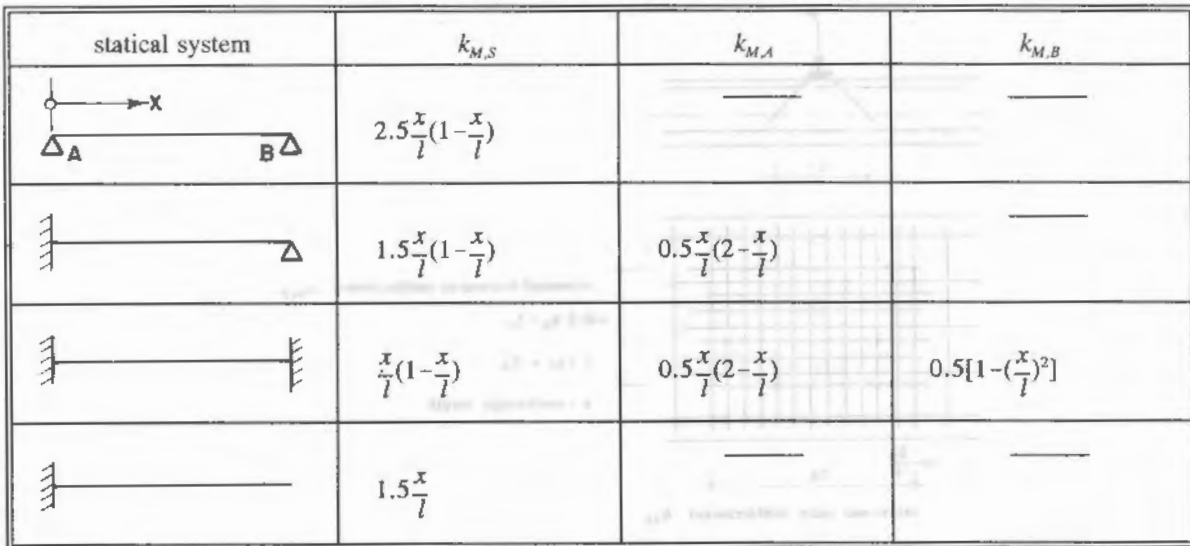 statical system k_{M,S} k_{M,A} k_{M,B}
x
A B 2.5 x/l (1 - x/l) — —
1.5 x/l (1 - x/l) 0.5 x/l (2 - x/l) —
x/l (1 - x/l) 0.5 x/l (2 - x/l) 0.5[1 - (x/l)²]
1.5 x/l — —